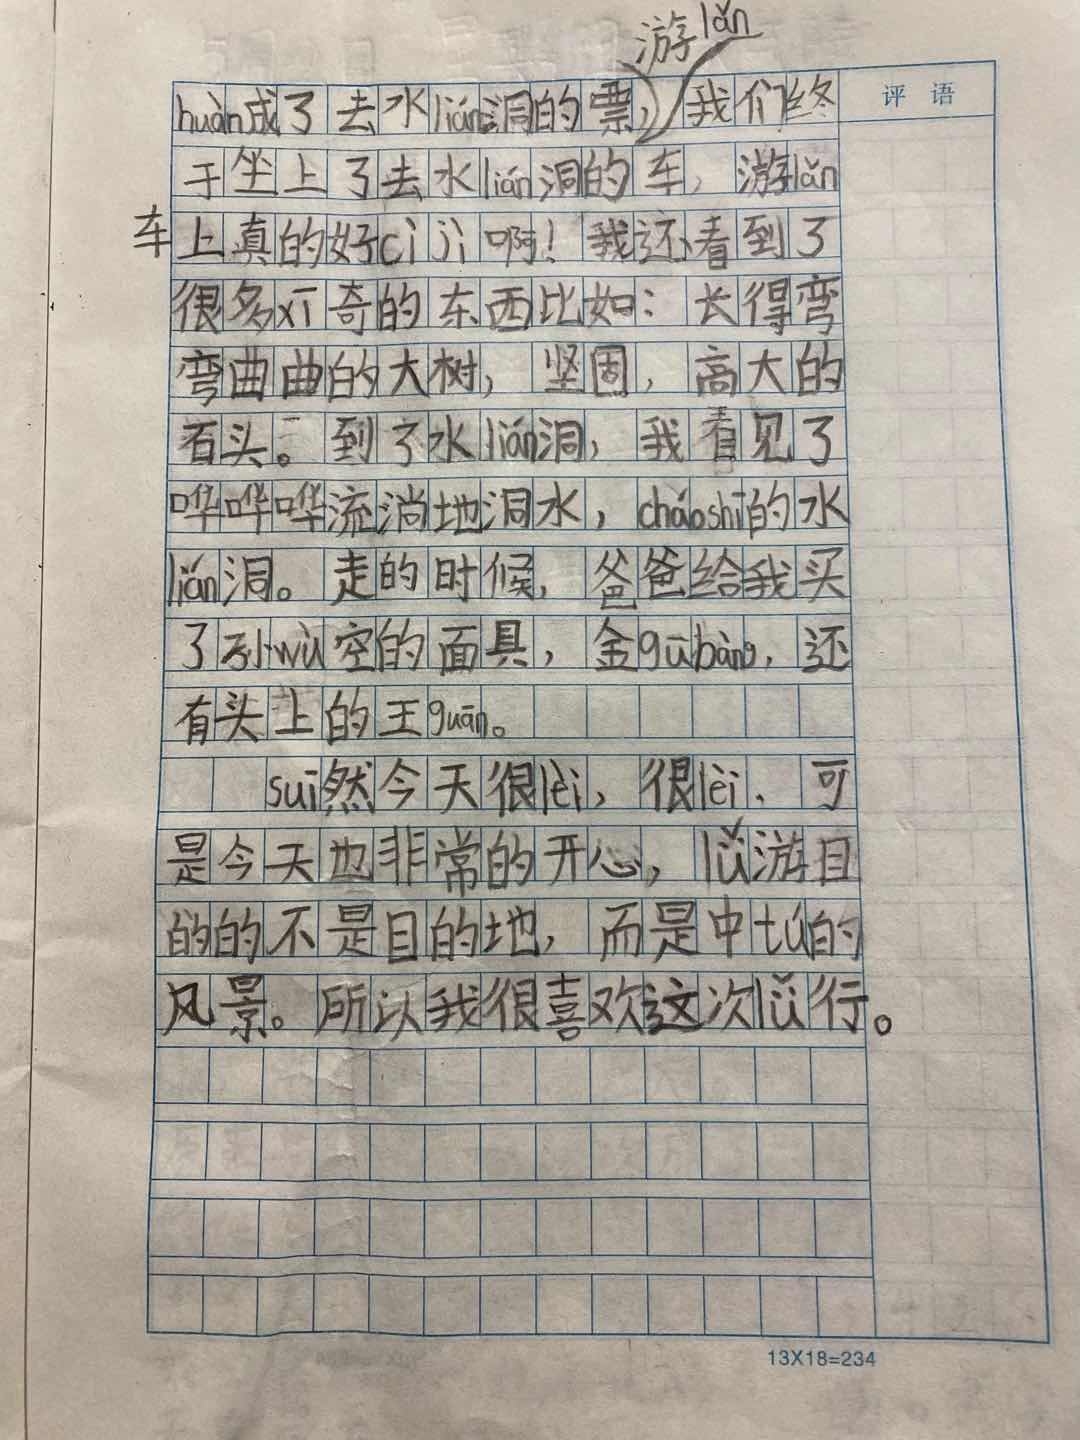 游lǎn
huàn成了去水lián洞的票,我们终
评 语
于坐上了去水lián洞的车,游lǎn
车上真的好cì jī啊!我还看到了
很多xī奇的东西比如:长得弯
弯曲曲的大树,坚固,高大的
石头。到了水lián洞,我看见了
哗哗哗流淌地洞水,cháoshī的水
lián洞。走的时候,爸爸给我买
了孙wù空的面具,金gūbàng,还
有头上的王guān。
suī然今天很lèi,很lèi.可
是今天也非常的开心,lǚ游目
的的不是目的地,而是中tú的
风景。所以我很喜欢这次lǚ行。
13X18=234